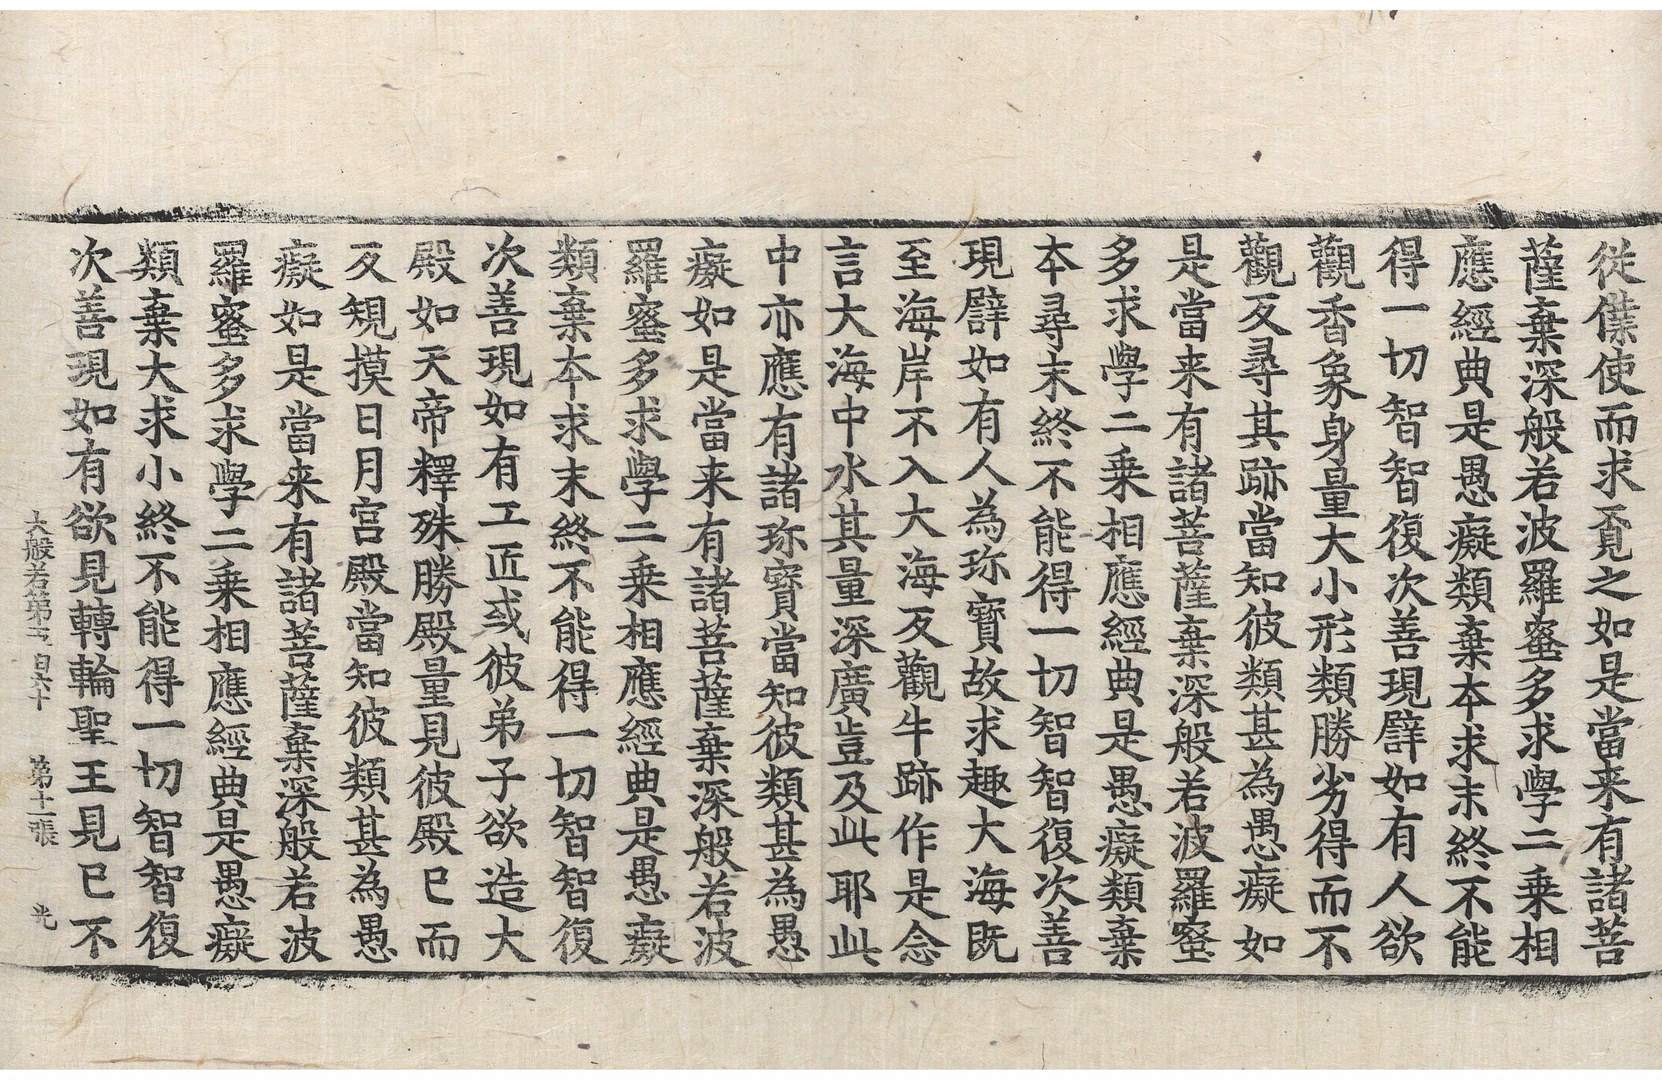 從僕使而求覔之如是當来有諸菩
薩棄深般若波羅蜜多求學二乗相
應經典是愚癡類棄本求末終不能
得一切智智復次善現譬如有人欲
觀香象身量大小形類勝劣得而不
觀反尋其跡當知彼類甚為愚癡如
是當来有諸菩薩棄深般若波羅蜜
多求學二乗相應經典是愚癡類棄
本尋末終不能得一切智智復次善
現譬如有人為珎寶故求趣大海既
至海岸不入大海反觀牛跡作是念
言大海中水其量深廣豈及此耶此
中亦應有諸珎寶當知彼類甚為愚
癡如是當来有諸菩薩棄深般若波
羅蜜多求學二乗相應經典是愚癡
類棄本求末終不能得一切智智復
次善現如有工匠或彼弟子欲造大
殿如天帝釋殊勝殿量見彼殿已而
反規摸日月宮殿當知彼類甚為愚
癡如是當来有諸菩薩棄深般若波
羅蜜多求學二乗相應經典是愚癡
類棄大求小終不能得一切智智復
次善現如有欲見轉輪聖王見已不
大般若第五百六十 第十二張 光